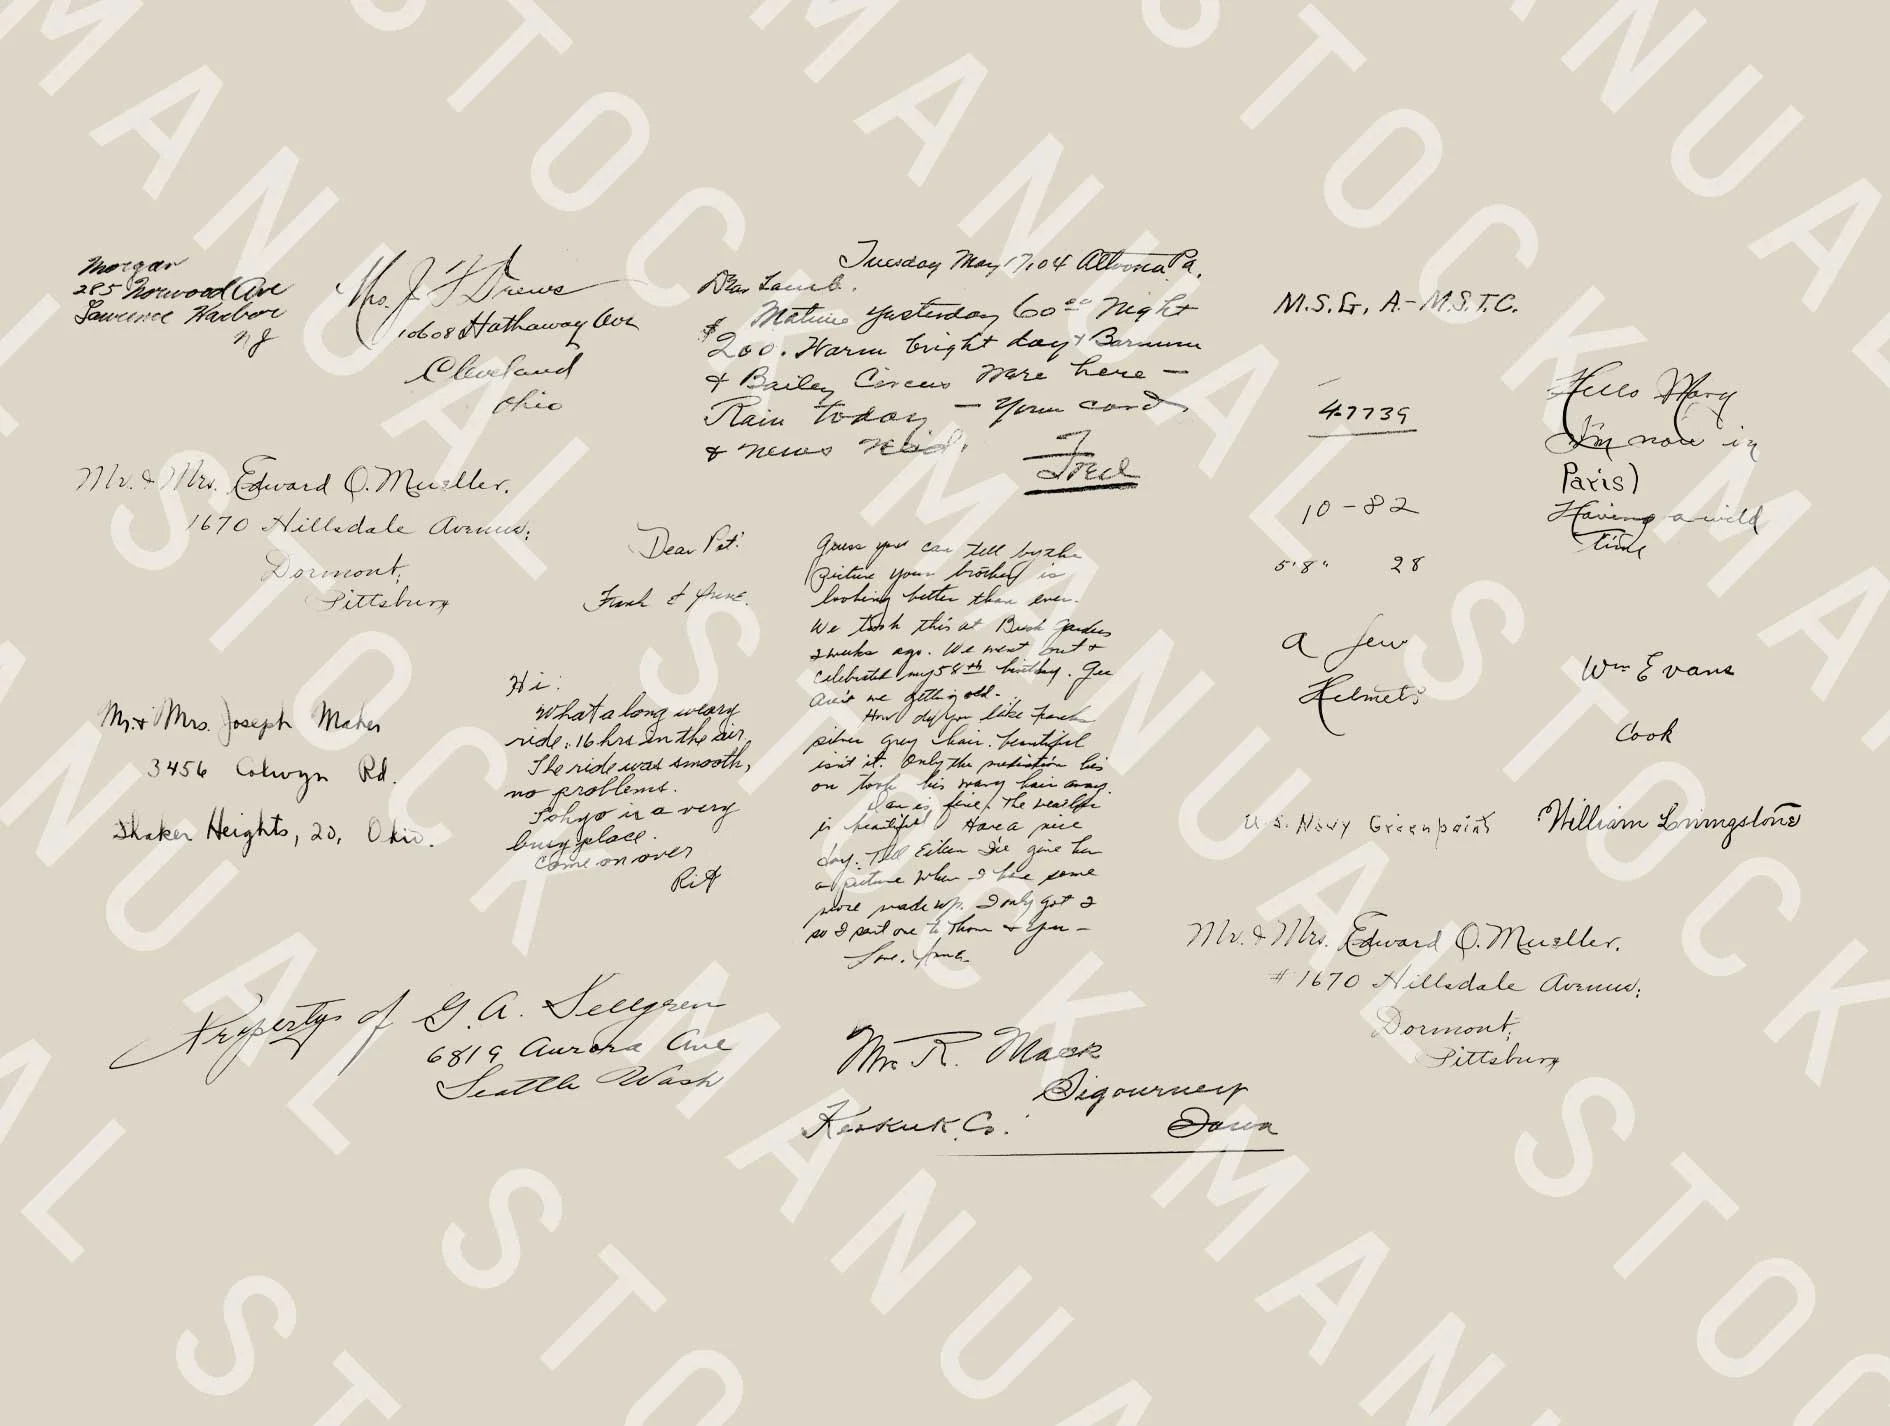 Morgan
285 Norwood Ave
Lawrence Harbor
NJ
Mrs. J F Drews
10608 Hathaway Ave
Cleveland
Ohio
Tuesday May 17, 04 Altoona Pa.
Dear Lamb.
Matinee yesterday 60 00 Night
$200. Warm bright day & Barnum
& Bailey Circus were here —
Rain today — Your card
& news
Fred
M.S.G, A-M.S.T.C.
47739
10-82
5'8" 28
a few
Helmets
Hello Mary
I'm now in
Paris)
Having a wild
time
Mr. & Mrs. Edward O. Mueller.
1670 Hillsdale Avenue;
Dormont,
Pittsburg
Dear Pat!
Frank & June.
Guess you can tell by the
picture your brother is
looking better than ever.
We took this at Bush Gardens
2 weeks ago. We went out &
celebrated my 58th birthday. Gee
Ain't we getting old-
How do you like Franks
silver grey hair. beautiful
isn't it. Only the medication his
on took his wavy hair away.
is fine. The weather
is beautiful Have a nice
day. Tell Eileen I'll give her
a picture when I have some
more made up. I only got 2
so I sent one to Thom & you —
Love. June.
Mr. & Mrs. Joseph Maher
3456 Colwyn Rd.
Shaker Heights, 20, Ohio.
Hi:
What a long weary
ride. 16 hrs in the air.
The ride was smooth,
no problems.
Tokyo is a very
busy place.
Come on over
Rit
Wm Evans
Cook
U.S. Navy Greenpoint
William Livingstone
Mr. & Mrs. Edward O. Mueller.
#1670 Hillsdale Avenue;
Dormont,
Pittsburg
Property of G. A. Sellgren
6819 Aurora Ave
Seattle Wash
Mr R. Mack
Sigourney
Keokuk Co. Iowa
MANUAL STOCK